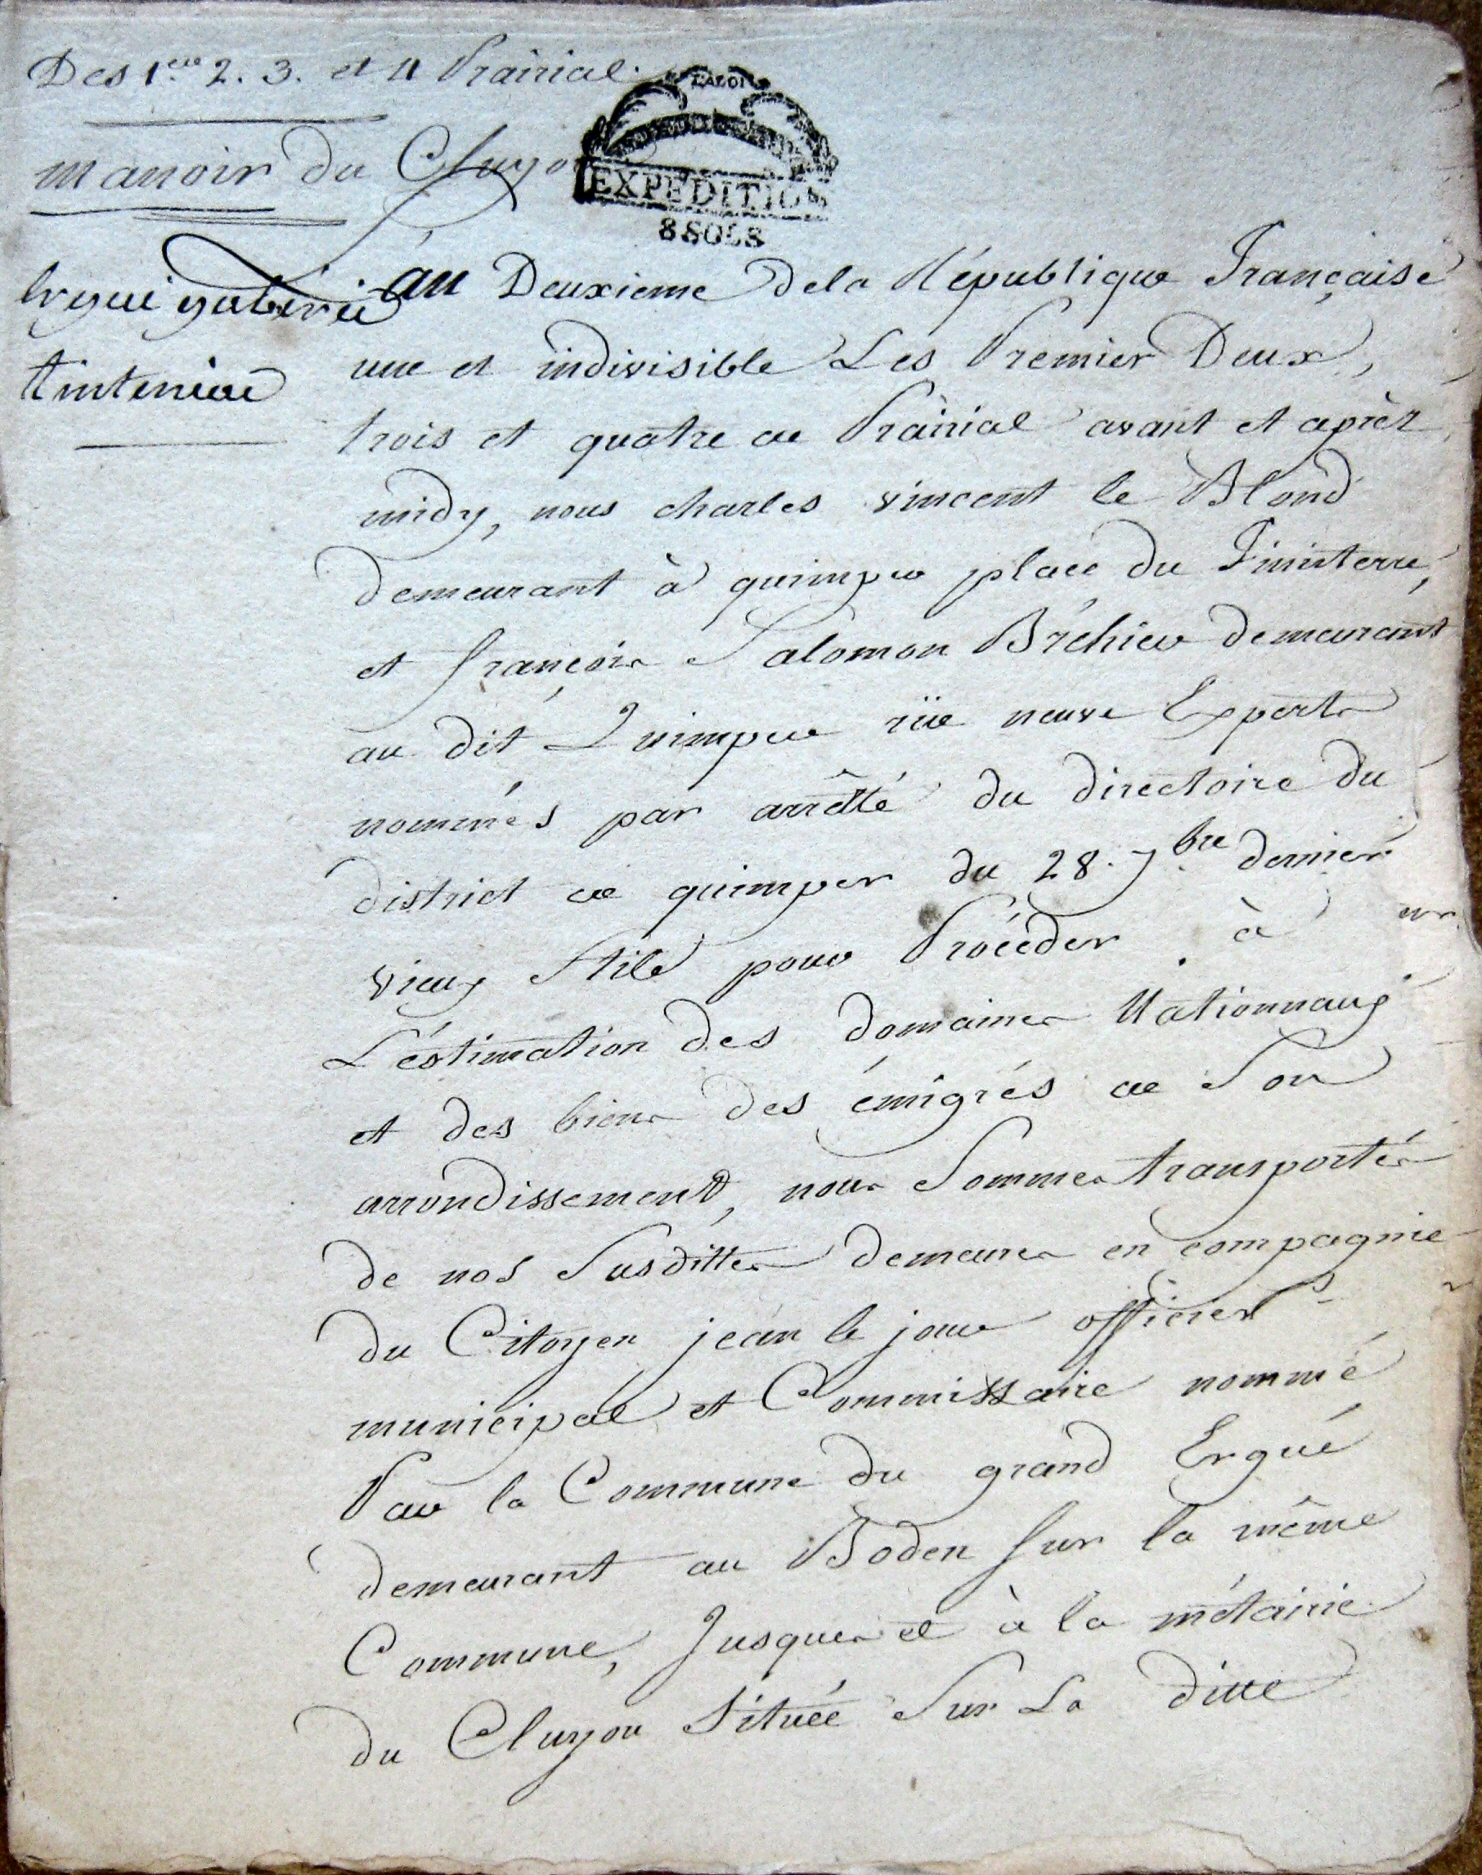 Des 1ers 2. 3. et 4 Prairial.
manoir du Cluyou
LA LOI
EXPEDITION
8 SOLS
Ergué gabéric
tinteniac
an Deuxieme de la République Française
une et indivisible Les Premier Deux,
trois et quatre de Prairial avant et après
midy, nous charles vincent le Blond
demeurant à quimper place du Finisterre,
et françois Salomon Bréhier demeurant
au dit Quimper rüe neuve Experts
nommés par arrêtté du directoire du
district de quimper du 28. 7bre dernier
vieux stile pour Procéder à
L'éstimation des domaines Nationnaux
et des biens des émigrés de Son
arrondissement, nous Sommes transportés
de nos Susdittes demeures en compagnie
du Citoyen jean le jour officier
municipal et Commissaire nommé
Par la Commune du grand Ergué
demeurant au Boden Sur la même
Commune, Jusques et à la métairie
du Cluyou Située Sur La ditte